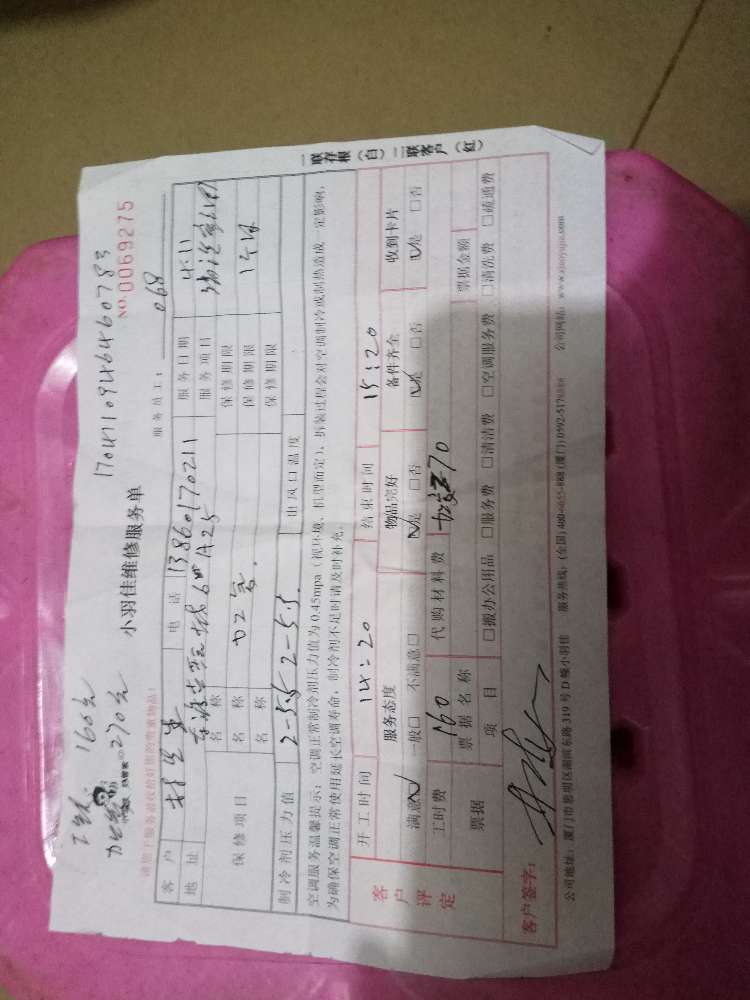 工钱 160元
270元
17047109464460783
小羽佳维修服务单
NO.0069275
请留下服务量收给好锁的贵重物品!
服务员工: 068
客户 电话 13860170211 服务日期 4.11
地址 A25 服务项目
保修项目 名称 加2氟. 保修期限
名称 保修期限
名称 保修期限
制冷剂压力值 2-5.5 2-5.5. 出风口温度
空调服务温馨提示:空调正常制冷剂压力值为0.45mpa(视环境、机型而定),拆装过程会对空调制冷或制热造成一定影响,
为确保空调正常使用延长空调寿命,制冷剂不足时请及时补充。
一联存根(白)二联客户(红)
开工时间 14:20 结束时间 15:20
客户评定
服务态度 物品完好 备件齐全 收到卡片
满意☑ 一般□ 不满意□ ☑是 □否 ☑是 □否 ☑是 □否
工时费 160 代购材料费 270
票据 票据名称 票据金额
项目 □搬办公用品 □服务费 □清洁费 □空调服务费 □清洗费 □疏通费
客户签字:
公司地址:厦门市思明区湖滨东路319号D幢小羽佳 服务热线:(全国)400-0655-888(厦门)0592-5178888 公司网站:www.xiaoyujia.com